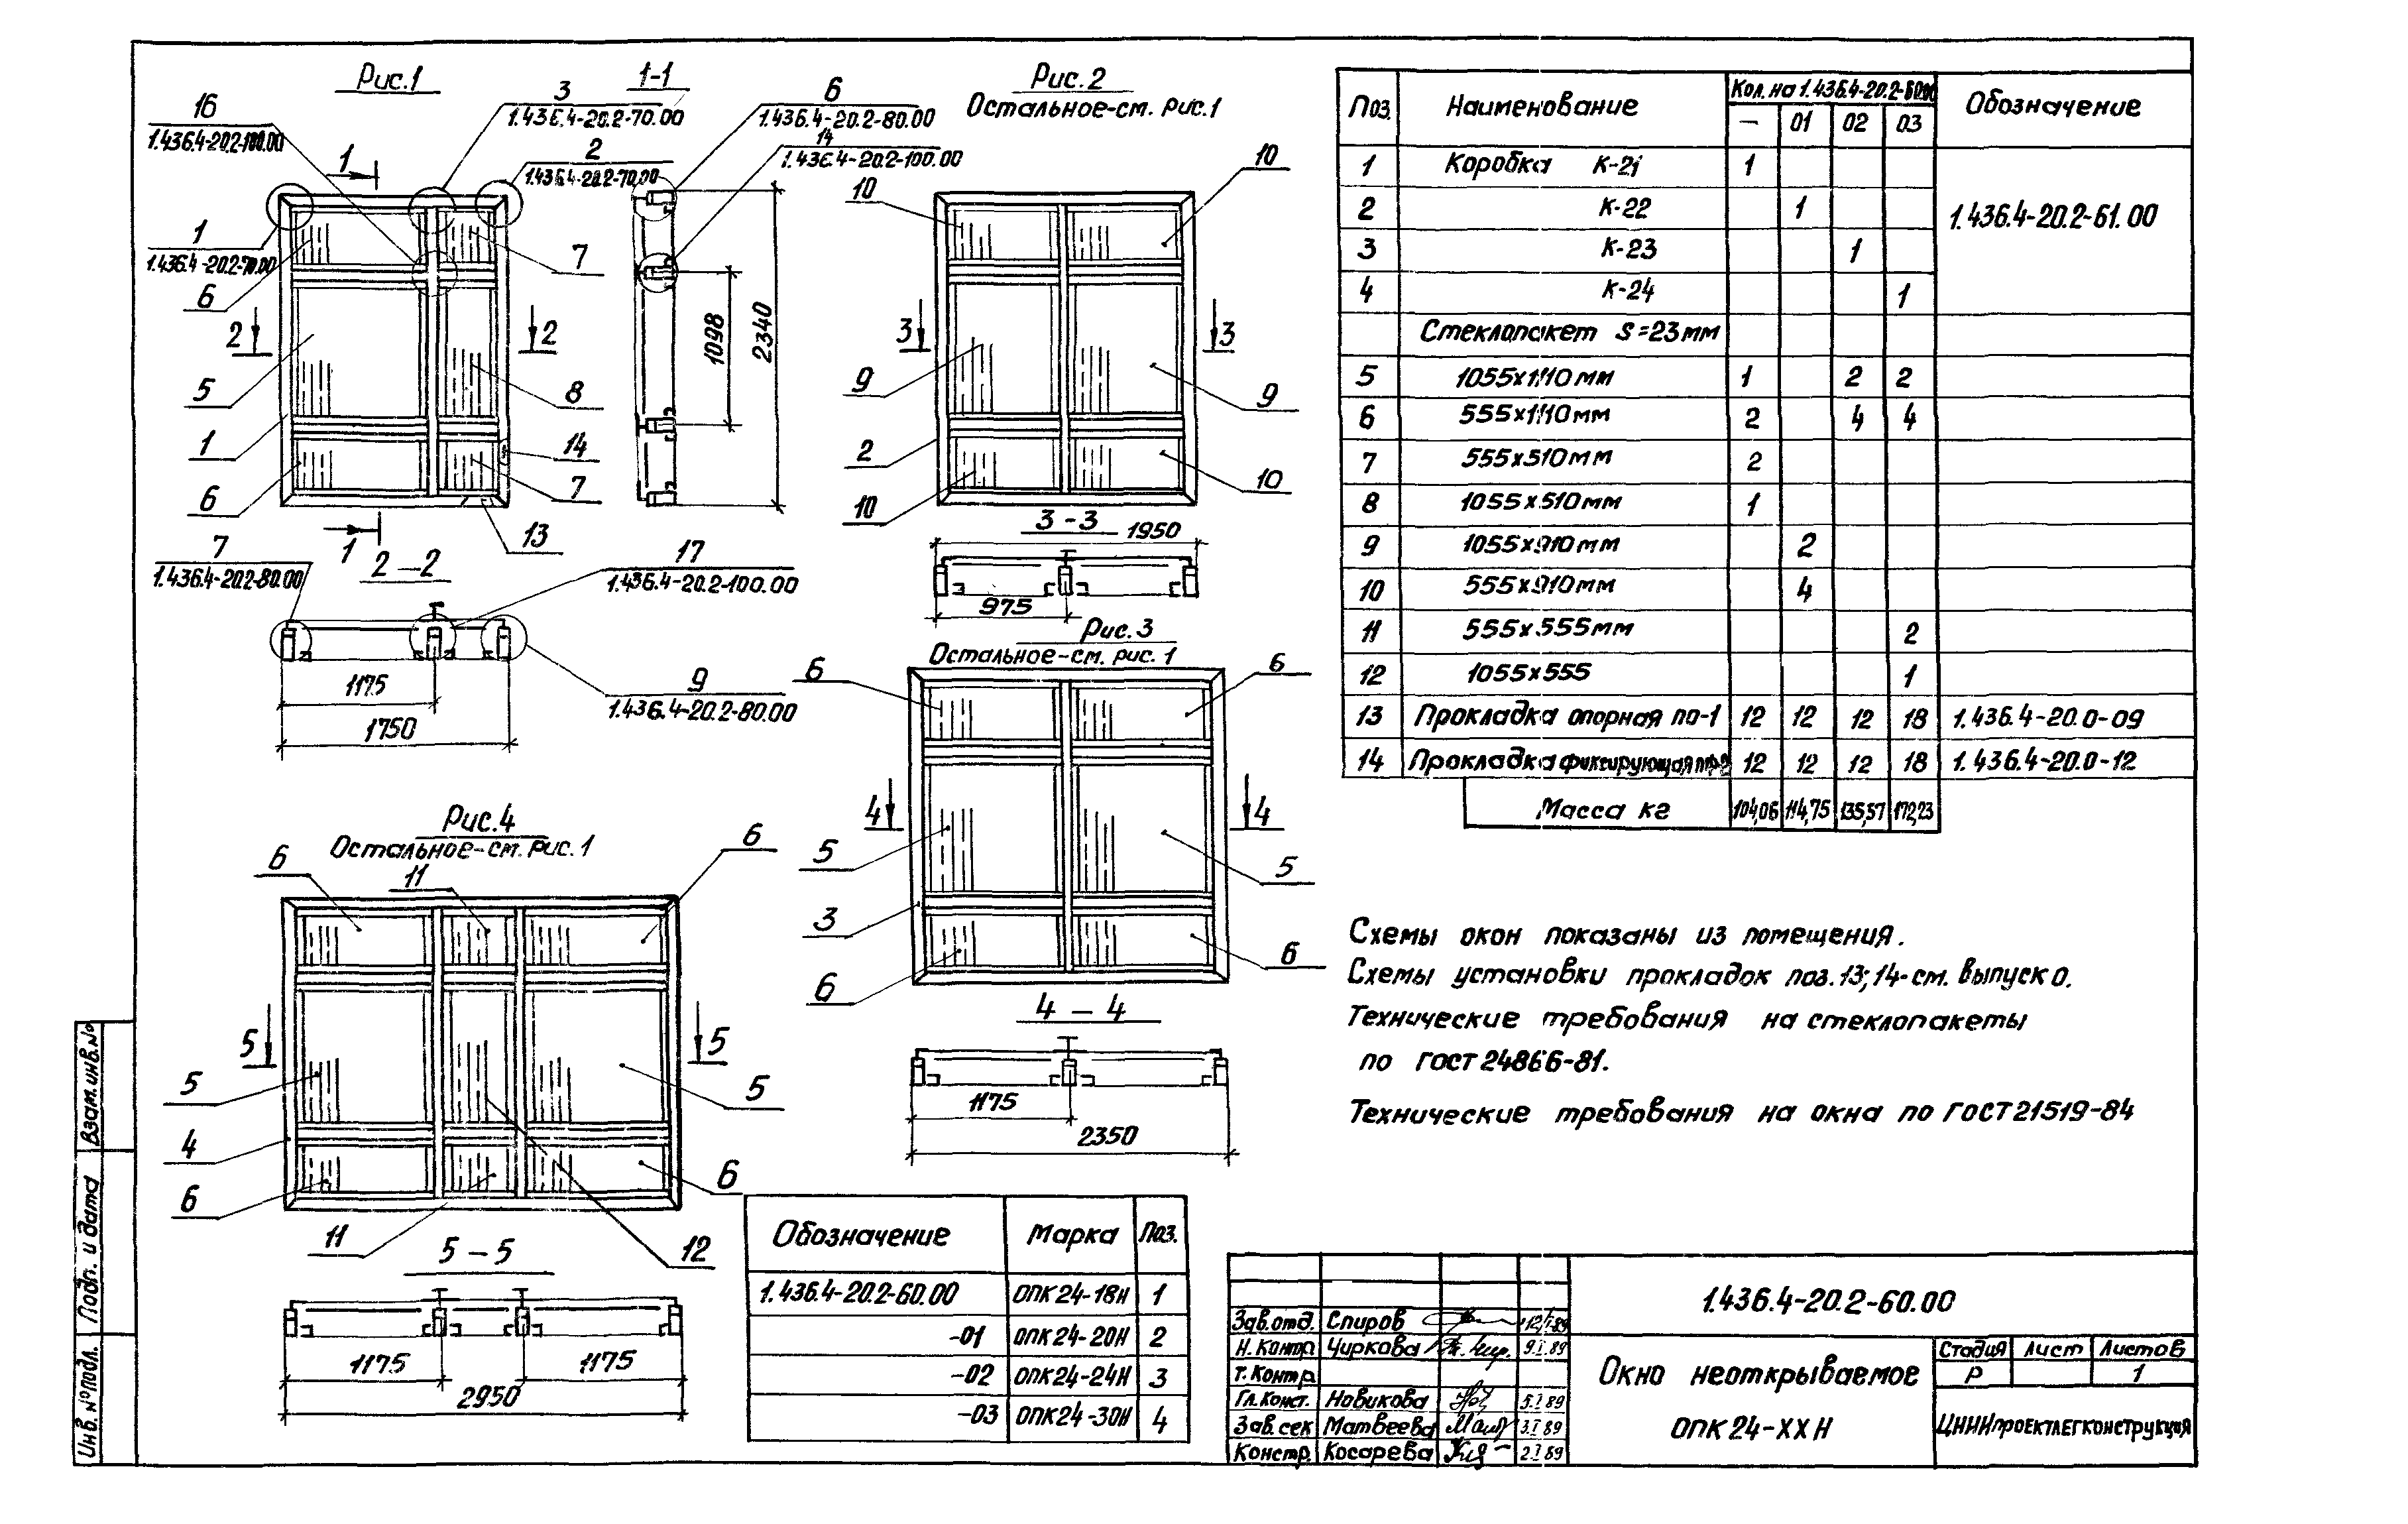 Рис.1
16
1.436.4-20.2-100.00
3
1.436.4-20.2-70.00
2
1.436.4-20.2-70.00
1
1
1.436.4-20.2-70.00
6
7
2
2
5
8
1
14
6
7
13
1
1-1
6
1.436.4-20.2-80.00
14
1.436.4-20.2-100.00
1098
2340
2-2
7
1.436.4-20.2-80.00
17
1.436.4-20.2-100.00
9
1.436.4-20.2-80.00
1175
1750
Рис.2
Остальное-см. рис.1
10
10
3
3
9
9
2
10
10
3-3
1950
975
Рис.3
Остальное-см. рис. 1
6
6
4
4
5
5
3
6
6
4-4
1175
2350
Рис.4
Остальное-см. рис.1
6
11
6
5
5
5
5
4
6
6
11
12
5-5
1175
1175
2950
Поз. Наименование Кол. на 1.436.4-20.2-60.00 Обозначение
— 01 02 03
1 Коробка К-21 1
2 К-22 1 1.436.4-20.2-61.00
3 К-23 1
4 К-24 1
Стеклопакет S=23мм
5 1055х1110мм 1 2 2
6 555х1110мм 2 4 4
7 555х510мм 2
8 1055х510мм 1
9 1055х910мм 2
10 555х910мм 4
11 555х555мм 2
12 1055х555 1
13 Прокладка опорная ПО-1 12 12 12 18 1.436.4-20.0-09
14 Прокладка фиксирующая 12 12 12 18 1.436.4-20.0-12
Масса кг 104,06 114,75 135,57 172,23
Схемы окон показаны из помещения.
Схемы установки прокладок поз.13;14-см. выпуск 0.
Технические требования на стеклопакеты
по ГОСТ 24866-81.
Технические требования на окна по ГОСТ 21519-84
Обозначение Марка Поз.
1.436.4-20.2-60.00 ОПК24-18Н 1
-01 ОПК24-20Н 2
-02 ОПК24-24Н 3
-03 ОПК24-30Н 4
1.436.4-20.2-60.00
Зав.отд. Спиров
Н. Контр. Чиркова 9.I.89
Т. Контр.
Гл.Конст. Новикова 5.I.89
Зав.сек Матвеева 3.I.89
Констр. Косарева 2.I.89
Окно неоткрываемое
ОПК24-ХХН
Стадия Лист Листов
Р 1
ЦНИИпроектлегконструкция
Взам.инв.№
Подп. и дата
Инв.№подл.